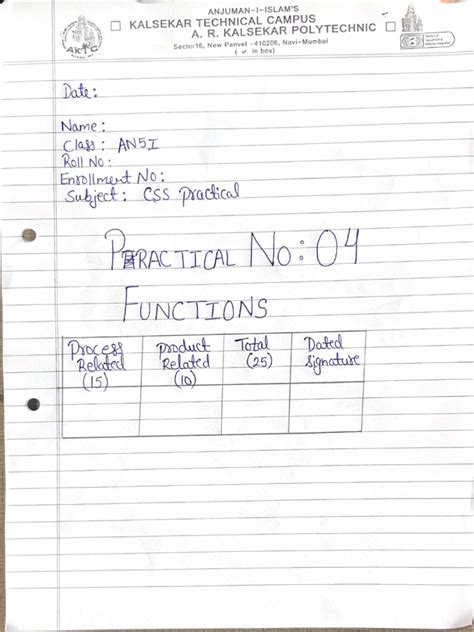 ANJUMAN-I-ISLAM'S
KALSEKAR TECHNICAL CAMPUS
A. R. KALSEKAR POLYTECHNIC
Sector16, New Panvel -410206, Navi-Mumbai
( ✓ in box)
AKTC
Date:
Name:
Class: AN5I
Roll No:
Enrollment No:
Subject: CSS practical
PRACTICAL No: 04
FUNCTIONS
Process Related (15)
Product Related (10)
Total (25)
Dated Signature